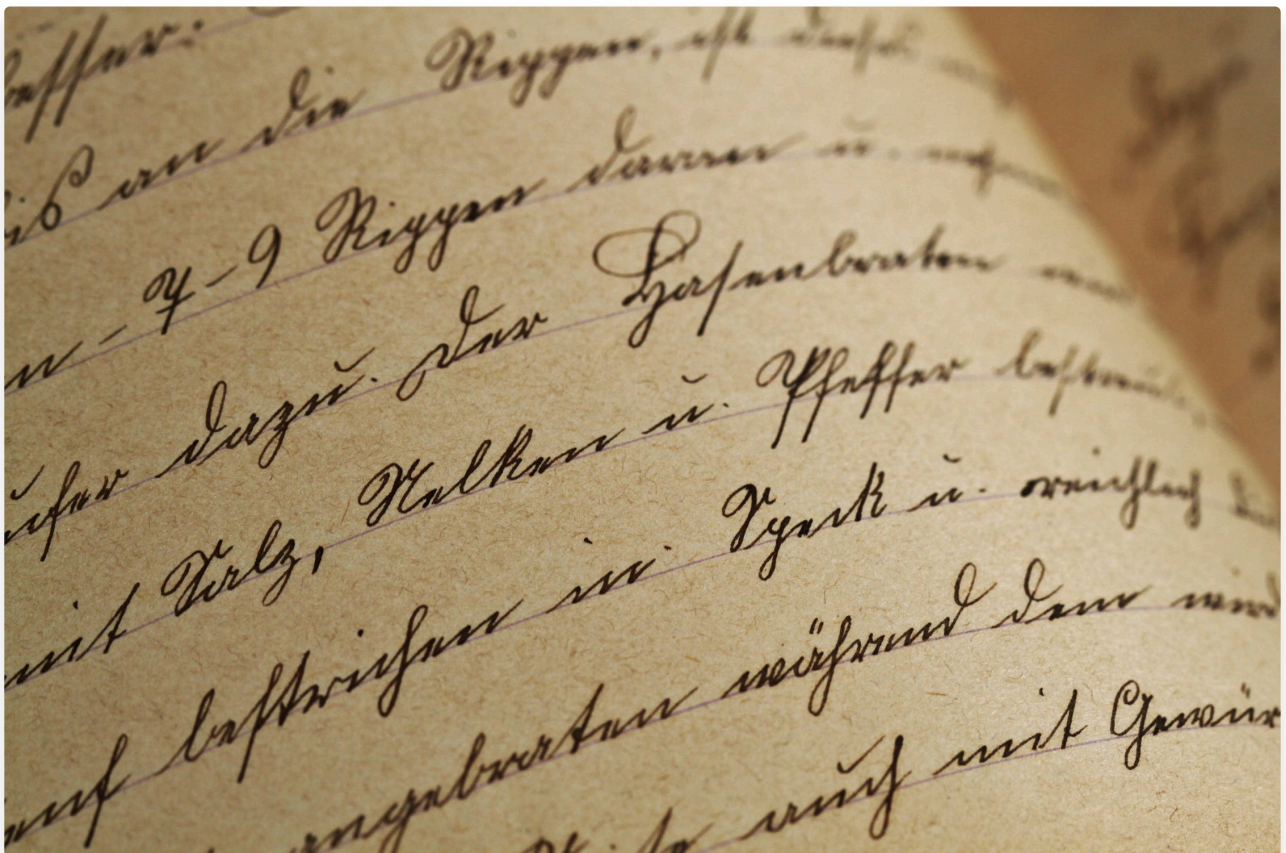 besser.
bis an die Rippen, ist dieser
n - 7-9 Rippen daran u.
Läufer dazu. Der Hasenbraten
mit Salz, Nelken u. Pfeffer bestreut
Senf bestrichen in Speck u. reichlich
angebraten während dem wird
auch mit Gewür